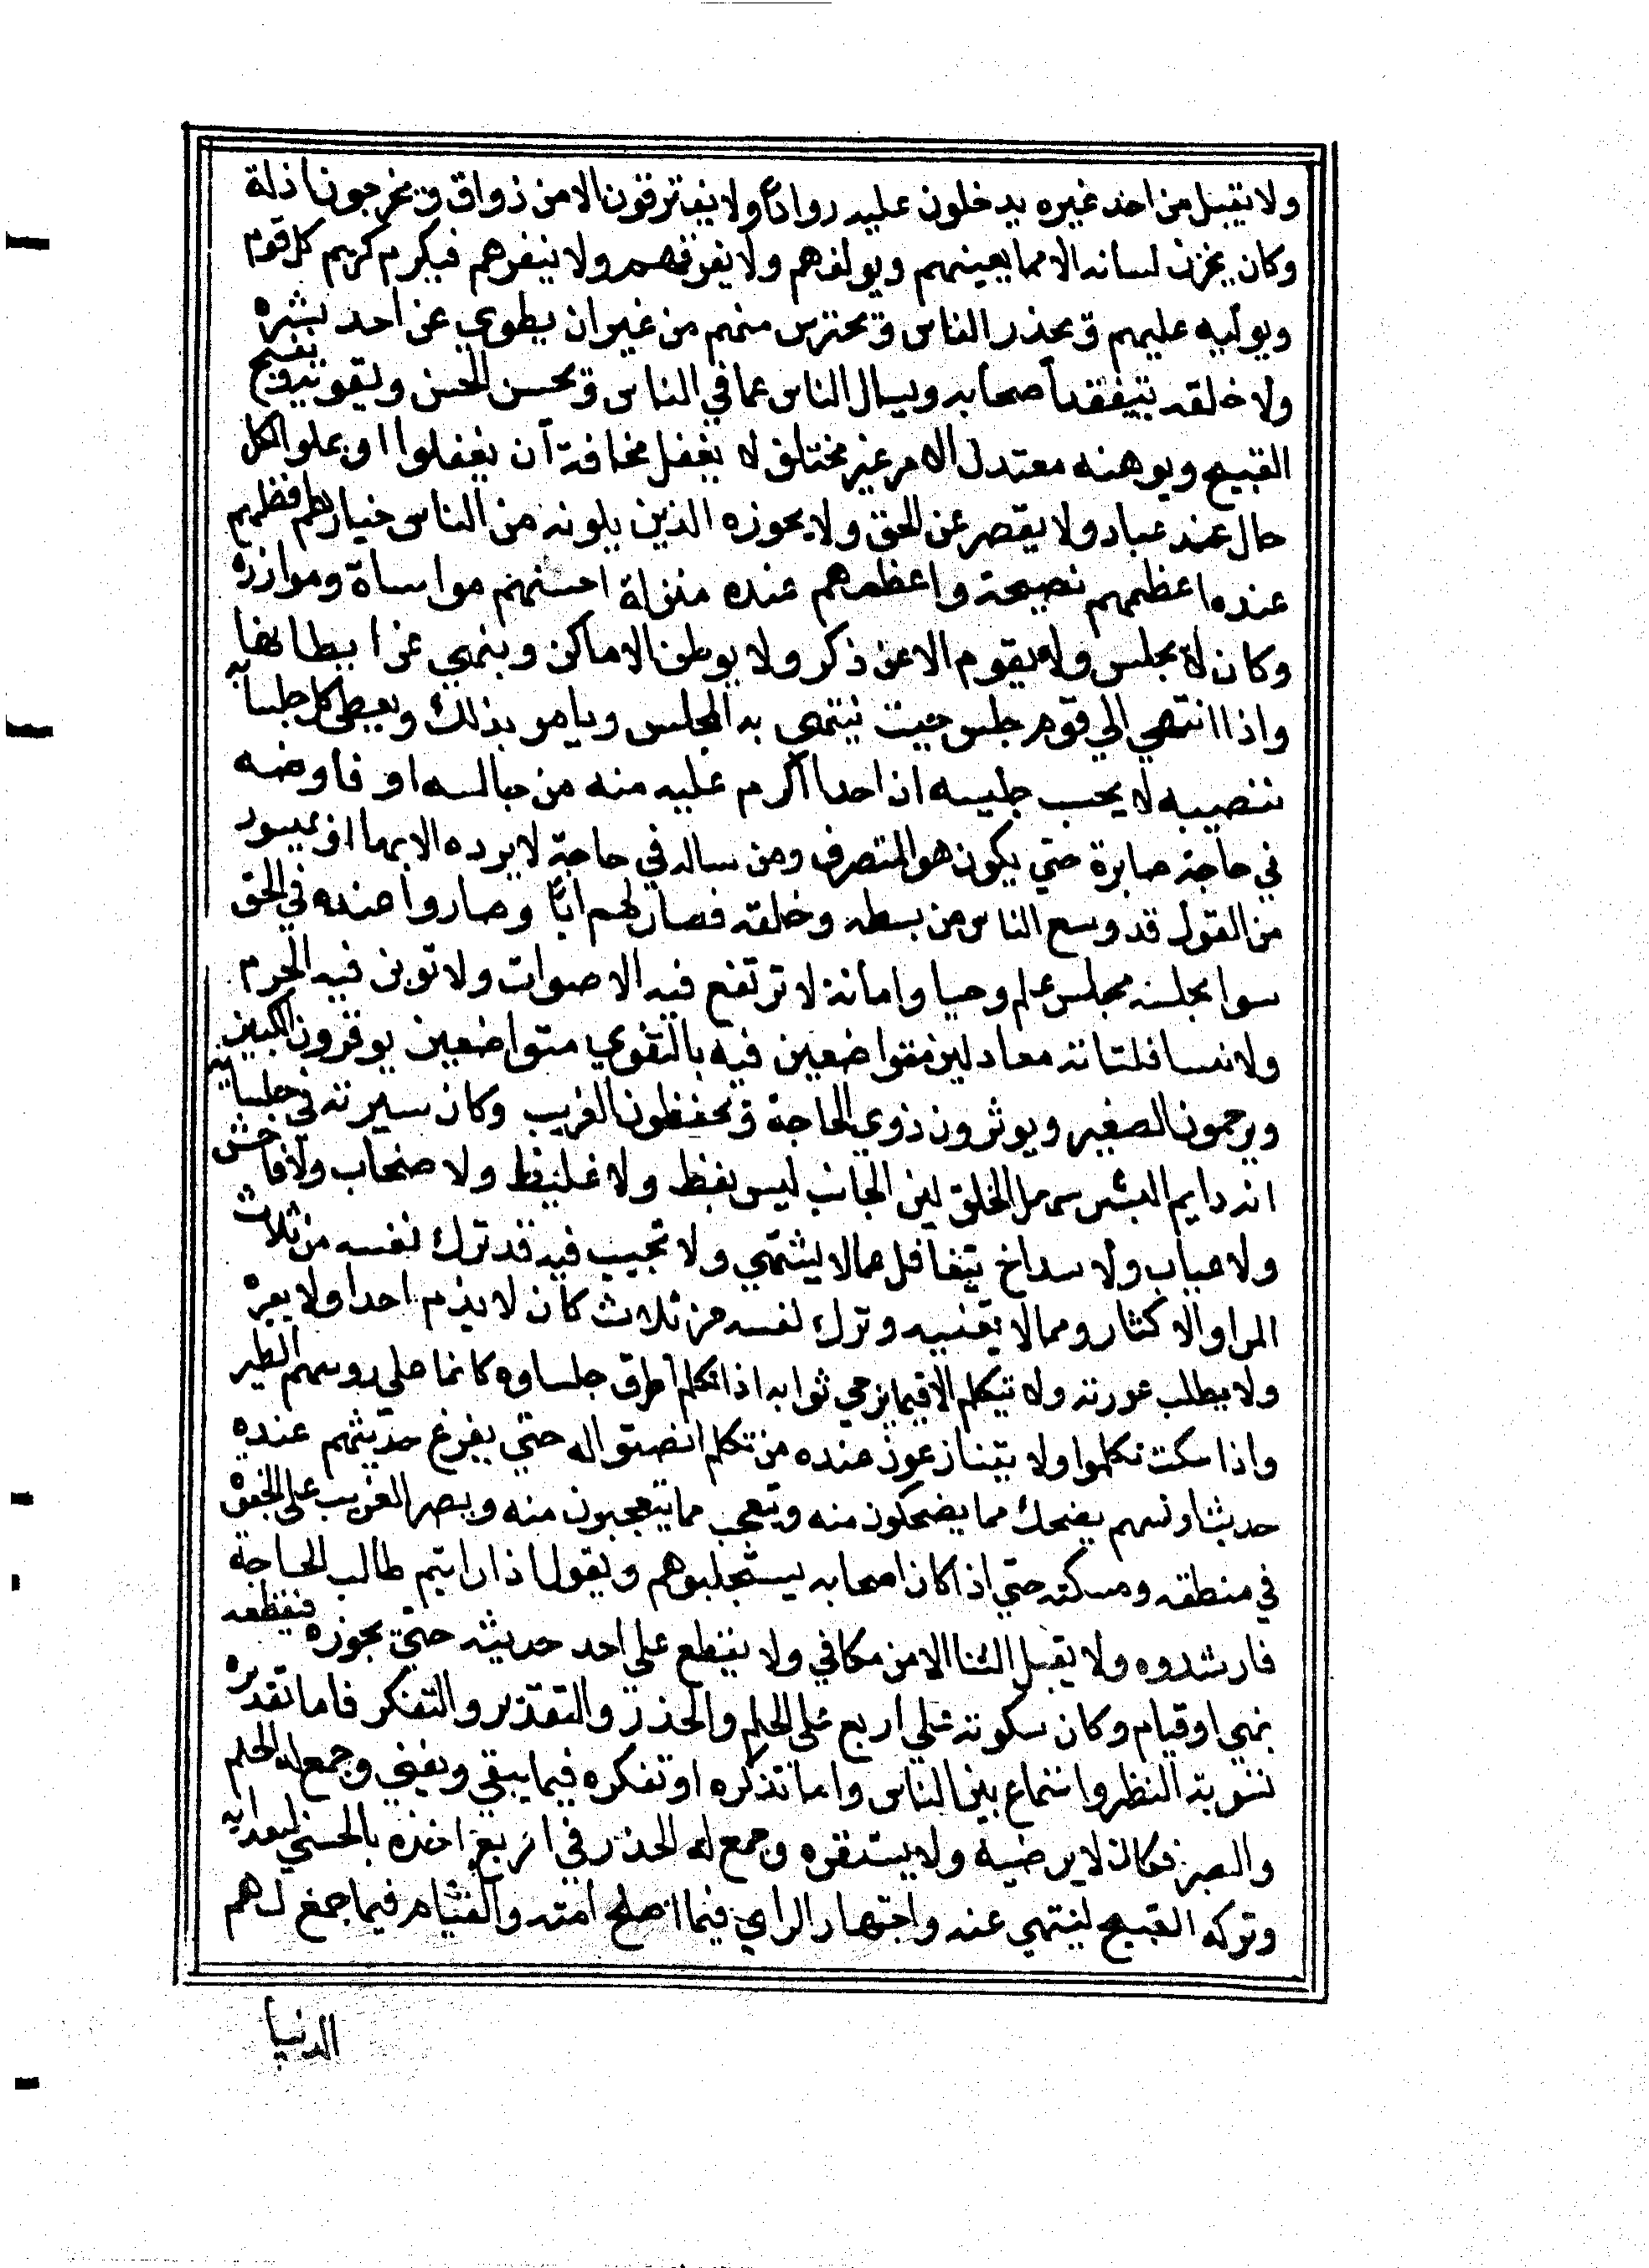 ولا يقبل من احد غيره يدخلون عليه روادا ولا يفترقون الا من ذواق ويخرجون اذلة
وكان يخزن لسانه الا مما يعينهم ويولفهم ولا يفرقهم ولا ينفرهم فيكرم كريم كل قوم
ويوليه عليهم ويحذر الناس ويحترس منهم من غير ان يطوي عن احد بشره
ولا خلقه يتفقد اصحابه ويسال الناس عما في الناس ويحسن الحسن ويقويه ويقبح
القبيح ويوهنه معتدل الامر غير مختلق لا يغفل مخافة ان يغفلوا او يملوا لكل
حال عنده عباد ولا يقصر عن الحق ولا يجوزه الذين يلونه من الناس خيارهم
عنده اعظمهم نصيحة واعظمهم عنده منزلة احسنهم مواساة وموازرة
وكان لا يجلس ولا يقوم الا عن ذكر ولا يوطن الاماكن وينهي عن ايطانها
واذا انتهي الي قوم جلس حيث ينتهي به المجلس ويامر بذلك ويعطي كل جلسايه
نصيبه لا يحسب جليسه ان احدا اكرم عليه منه من جالسه او فاوضه
في حاجة صابره حتي يكون هو المتصرف ومن ساله في حاجة لا يرده الا بها او بميسور
من القول قد وسع الناس من بسطه وخلقه فصار لهم ابًا وصاروا عنده في الحق
سوا مجلسه مجلس علم وحيا وامانة لا ترتفع فيه الاصوات ولا توبن فيه الحرم
ولا فلتاته معادلين متواضعين فيه بالتقوي متواضعين يوقرون الكبير
ويرحمون الصغير ويوثرون ذوي الحاجة ويحفظون الغريب وكان سيرته في جلسايه
انه دايم البشر سهل الخلق لين الجانب ليس بفظ ولا غليظ ولا صخاب ولا فاحش
ولا عياب ولا مداح يتغافل عما لا يشتهي ولا يجيب فيه قد ترك نفسه من ثلاث
المرا والاكثار ومما لا يعنيه وترك نفسه من ثلاث كان لا يذم احدا ولا يعيره
ولا يطلب عورته ولا يتكلم الا فيما يرجي ثوابه اذا تكلم اطرق جلساوه كانما علي روسهم الطير
واذا سكت تكلموا ولا يتنازعون عنده من تكلم انصتوا له حتي يفرغ حديثهم عنده
حديث اولهم يضحك مما يضحكون منه ويتعجب مما يتعجبون منه ويصبر الغريب علي الجفوة
في منطقه ومسكته حتي اذا كان اصحابه يستجلبوهم ويقول اذا رايتم طالب الحاجة
فارشدوه ولا يقبل الثنا الا من مكافي ولا يقطع علي احد حديثه حتي يجوزه فيقطعه
بنهي او قيام وكان سكوته علي اربع علي الحلم والحذر والتقدير والتفكر فاما تقديره
تسوية النظر واستماع بين الناس واما تذكره او تفكره فيما يبقي ويفني وجمع له الحلم
والصبر فكان لا يرضيه ولا يستفزه وجمع له الحذر في اربع اخذه بالحسني
وتركه القبيح لينتهي عنه واجتهاد الراي فيما اصلح امته والقيام فيما جمع لهم
الدنيا